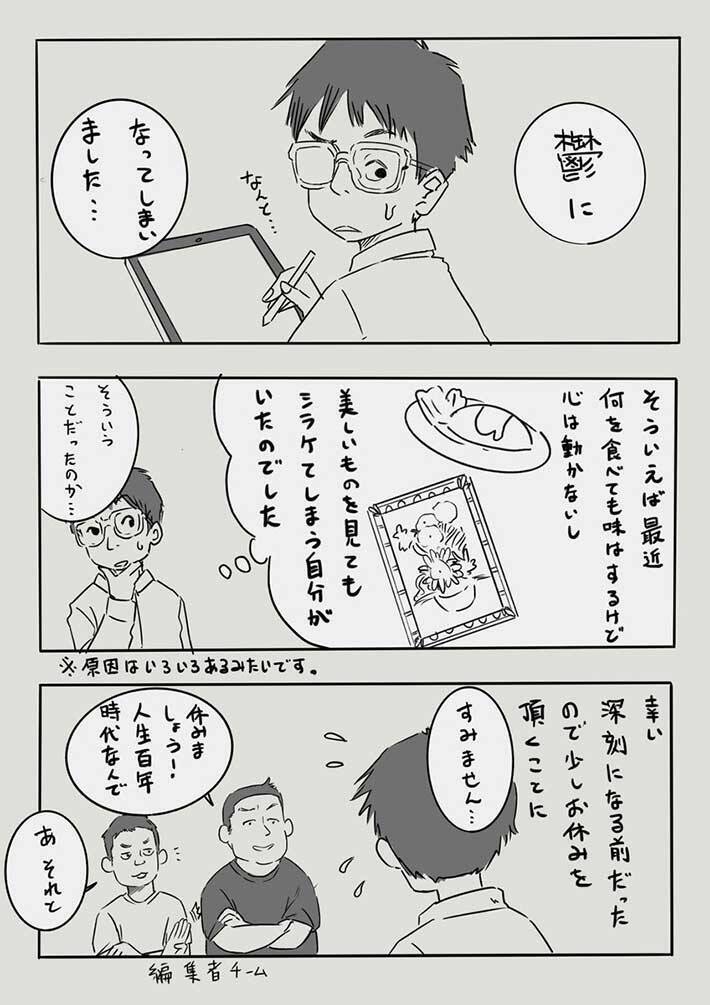 鬱に
なってしまい
ました…
なんと…
そういえば最近
何を食べても味はするけど
心は動かないし
美しいものを見ても
シラケてしまう自分が
いたのでした
そういう
ことだったのか…
※原因はいろいろあるみたいです。
幸い
深刻になる前だった
ので少しお休みを
頂くことに
すみません…
休みま
しょう！
人生百年
時代なんで
あ それと
編集者チーム